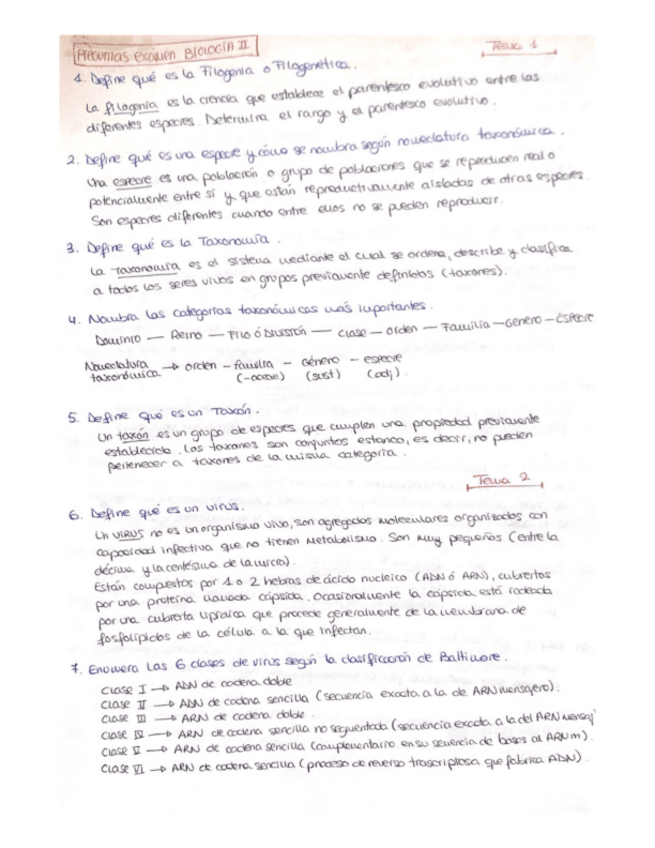 PREGUNTAS EXÁMEN BIOLOGÍA II
Tema 1
1. Define qué es la Filogenia o Filogenética.
La filogenia es la ciencia que establece el parentesco evolutivo entre las
diferentes especies. Determina el rango y el parentesco evolutivo.
2. Define qué es una especie y cómo se nombra según nomenclatura taxonómica.
Una especie es una población o grupo de poblaciones que se reproducen real o
potencialmente entre sí y que están reproductivamente aisladas de otras especies.
Son especies diferentes cuando entre ellos no se pueden reproducir.
3. Define qué es la Taxonomía.
La Taxonomía es el sistema mediante el cual se ordena, describe y clasifica
a todos los seres vivos en grupos previamente definidos (taxones).
4. Nombra las categorías taxonómicas más importantes.
Dominio — Reino — Filo ó División — Clase — Orden — Familia — Género — Especie
Nomeclatura taxonómica → orden – familia – Género – especie
(-aceae) (sust) (adj).
5. Define qué es un Taxón.
Un taxón es un grupo de especies que cumplen una propiedad previamente
establecida. Los taxones son conjuntos estanco, es decir, no pueden
pertenecer a taxones de la misma categoría.
Tema 2
6. Define qué es un virus.
Un virus no es un organismo vivo, son agregados moleculares organizados con
capacidad infectiva que no tienen metabolismo. Son muy pequeños (entre la
décima y la centésima de la micra).
Están compuestos por 1 o 2 hebras de ácido nucleico (ADN ó ARN), cubiertos
por una proteína llamada cápsida. Ocasionalmente la cápsida está rodeada
por una cubierta lipídica que procede generalmente de la membrana de
fosfolípidos de la célula a la que infectan.
7. Enumera las 6 clases de virus según la clasificación de Baltimore.
Clase I → ADN de cadena doble
Clase II → ADN de cadena sencilla (secuencia exacta a la de ARN mensajero).
Clase III → ARN de cadena doble.
Clase IV → ARN de cadena sencilla no segmentada (secuencia exacta a la del ARN mensaj
Clase V → ARN de cadena sencilla (complementario en su secuencia de bases al ARNm).
Clase VI → ARN de cadena sencilla (proceso de reverso trascriptosa que fabrica ADN).